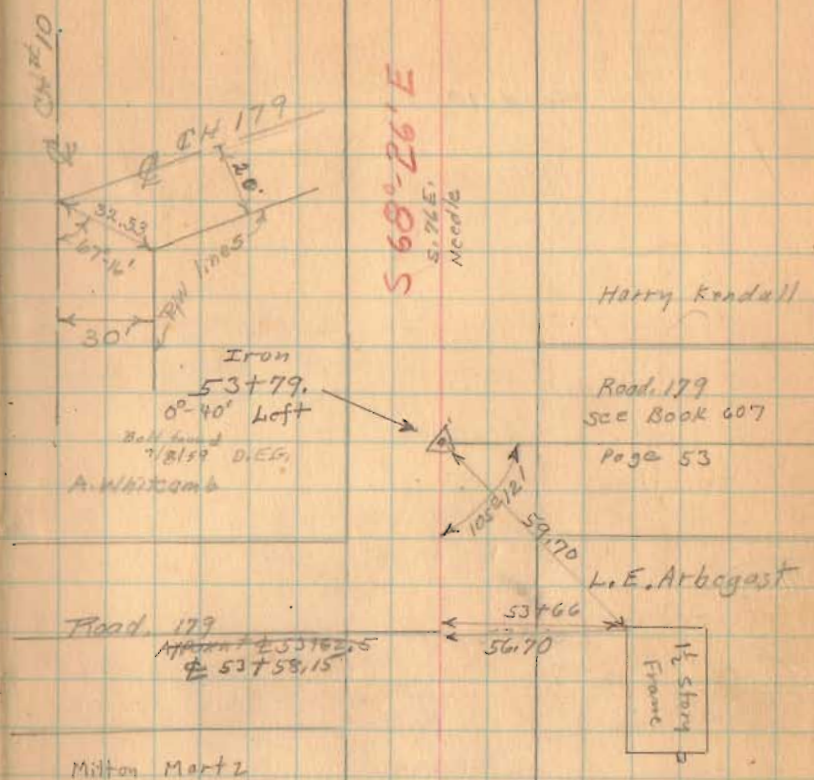 ℄ CH #10
℄ CH 179
20'
32.53
67-16'
R/W lines
30'
S 68°-26' E
S. 76 E.
Needle
Harry Kendall
Iron
53+79.
0°-40' Left
Bolt found
7/8/59 D.E.G.
A. Whitcomb
Road. 179
see Book 607
Page 53
105°12'
59.70
L. E. Arbogast
53+66
56.70
Road. 179
Apparent ℄ 53+62.5
℄ 53+58.15
1½ Story
Frame
Milton Martz